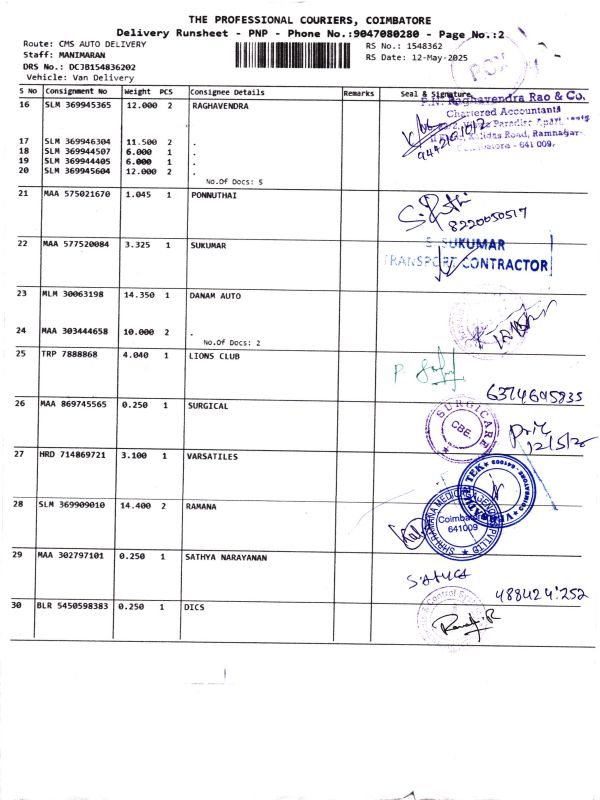 THE PROFESSIONAL COURIERS, COIMBATORE
Delivery Runsheet - PNP - Phone No.:9047080280 - Page No.:2
Route: CMS AUTO DELIVERY
RS No.: 1548362
Staff: MANIMARAN
RS Date: 12-May-2025
DRS No.: DCJB154836202
Vehicle: Van Delivery
POY
S No Consignment No Weight PCS Consignee Details Remarks Seal & Signature
16 SLM 369945365 12.000 2 RAGHAVENDRA
P.N. Raghavendra Rao & Co.
Chartered Accountants
Kalidas Road, Ramnagar
Coimbatore - 641 009.
17 SLM 369946304 11.500 2 .
18 SLM 369944507 6.000 1 .
19 SLM 369944405 6.000 1 .
20 SLM 369945604 12.000 2 .
No.Of Docs: 5
21 MAA 575021670 1.045 1 PONNUTHAI
8220050517
22 MAA 577520084 3.325 1 SUKUMAR
S SUKUMAR
TRANSPORT CONTRACTOR
23 MLM 30063198 14.350 1 DANAM AUTO
24 MAA 303444658 10.000 2 .
No.Of Docs: 2
25 TRP 7888868 4.040 1 LIONS CLUB
6374695835
26 MAA 869745565 0.250 1 SURGICAL
SURGICARE
CBE.
12/5/25
27 HRD 714869721 3.100 1 VARSATILES
COIMBATORE - 641009
28 SLM 369909010 14.400 2 RAMANA
Coimbatore
641009
29 MAA 302797101 0.250 1 SATHYA NARAYANAN
30 BLR 5450598383 0.250 1 DICS
& Control Sys